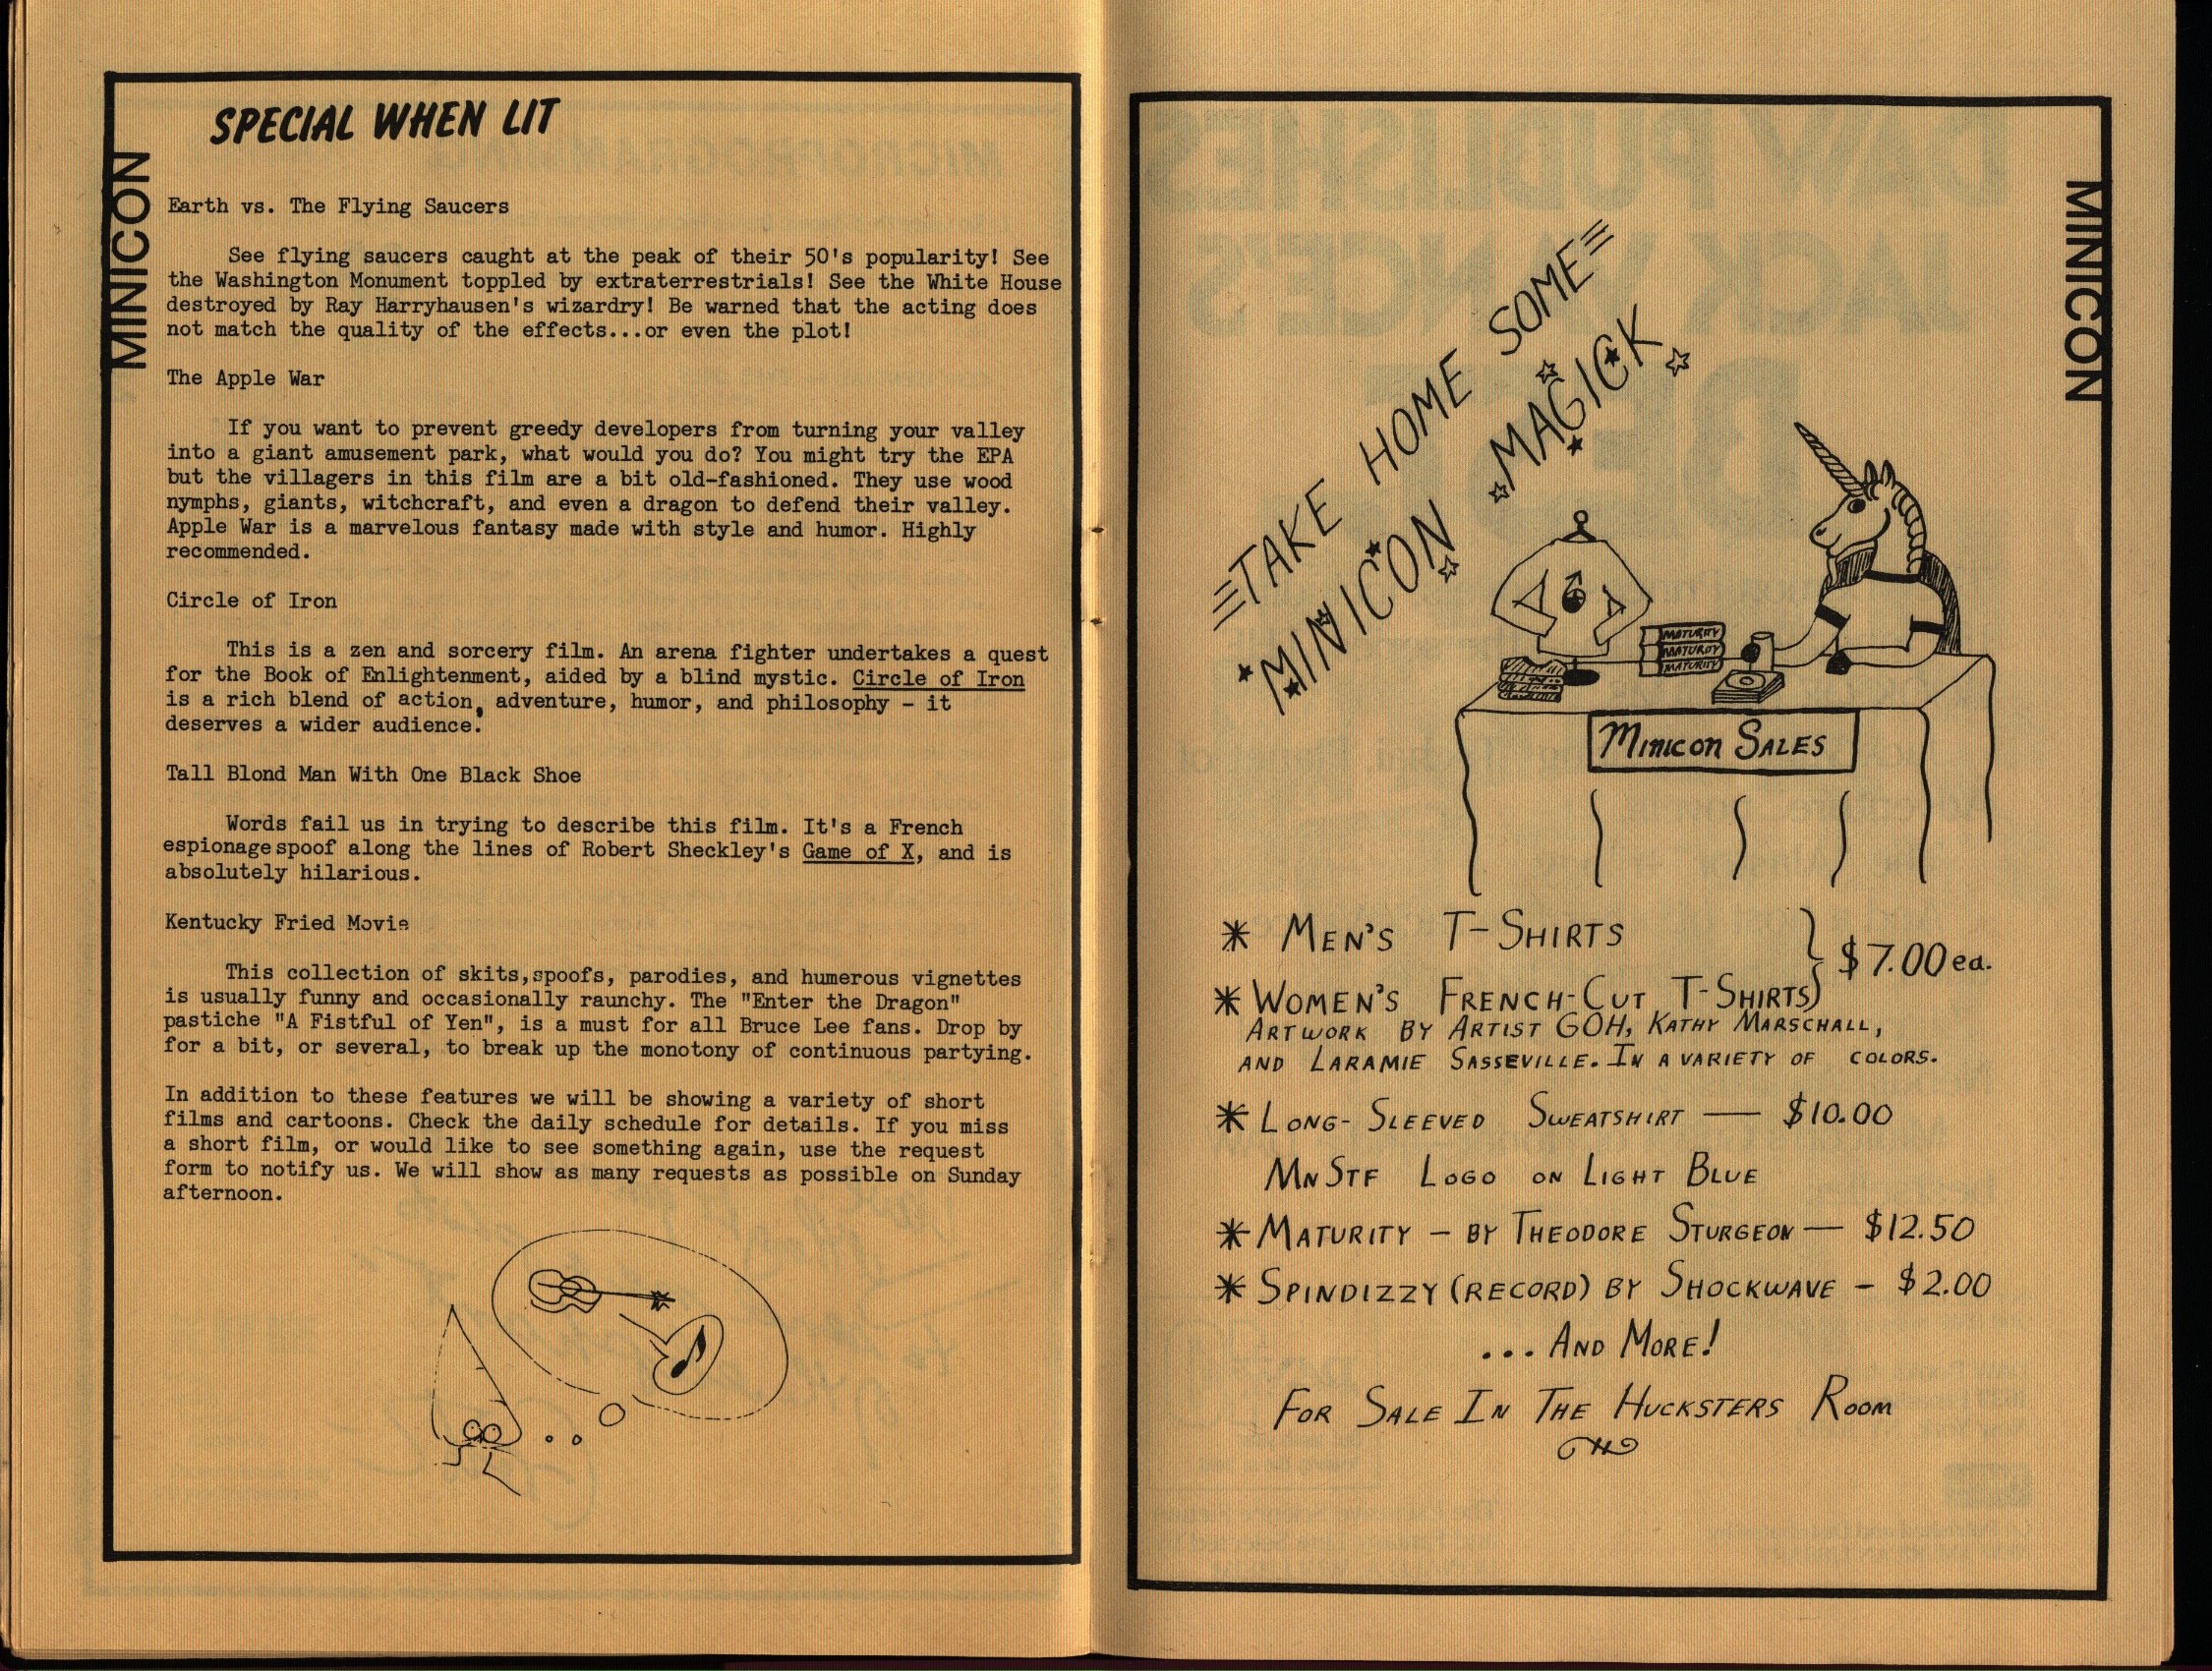 SPECIAL WHEN LIT
MINICON
Earth vs. The Flying Saucers
See flying saucers caught at the peak of their 50's popularity! See
the Washington Monument toppled by extraterrestrials! See the White House
destroyed by Ray Harryhausen's wizardry! Be warned that the acting does
not match the quality of the effects...or even the plot!
The Apple War
If you want to prevent greedy developers from turning your valley
into a giant amusement park, what would you do? You might try the EPA
but the villagers in this film are a bit old-fashioned. They use wood
nymphs, giants, witchcraft, and even a dragon to defend their valley.
Apple War is a marvelous fantasy made with style and humor. Highly
recommended.
Circle of Iron
This is a zen and sorcery film. An arena fighter undertakes a quest
for the Book of Enlightenment, aided by a blind mystic. Circle of Iron
is a rich blend of action, adventure, humor, and philosophy - it
deserves a wider audience.
Tall Blond Man With One Black Shoe
Words fail us in trying to describe this film. It's a French
espionage spoof along the lines of Robert Sheckley's Game of X, and is
absolutely hilarious.
Kentucky Fried Movie
This collection of skits, spoofs, parodies, and humerous vignettes
is usually funny and occasionally raunchy. The "Enter the Dragon"
pastiche "A Fistful of Yen", is a must for all Bruce Lee fans. Drop by
for a bit, or several, to break up the monotony of continuous partying.
In addition to these features we will be showing a variety of short
films and cartoons. Check the daily schedule for details. If you miss
a short film, or would like to see something again, use the request
form to notify us. We will show as many requests as possible on Sunday
afternoon.
MINICON
TAKE HOME SOME
MINICON MAGICK
MATURITY
MATURITY
MATURITY
MINICON SALES
* MEN'S T-SHIRTS
$7.00 ea.
* WOMEN'S FRENCH-CUT T-SHIRTS
ARTWORK BY ARTIST GOH, KATHY MARSCHALL,
AND LARAMIE SASSEVILLE. IN A VARIETY OF COLORS.
* LONG-SLEEVED SWEATSHIRT — $10.00
MNSTF LOGO ON LIGHT BLUE
* MATURITY - BY THEODORE STURGEON — $12.50
* SPINDIZZY (RECORD) BY SHOCKWAVE - $2.00
... AND MORE!
FOR SALE IN THE HUCKSTERS ROOM